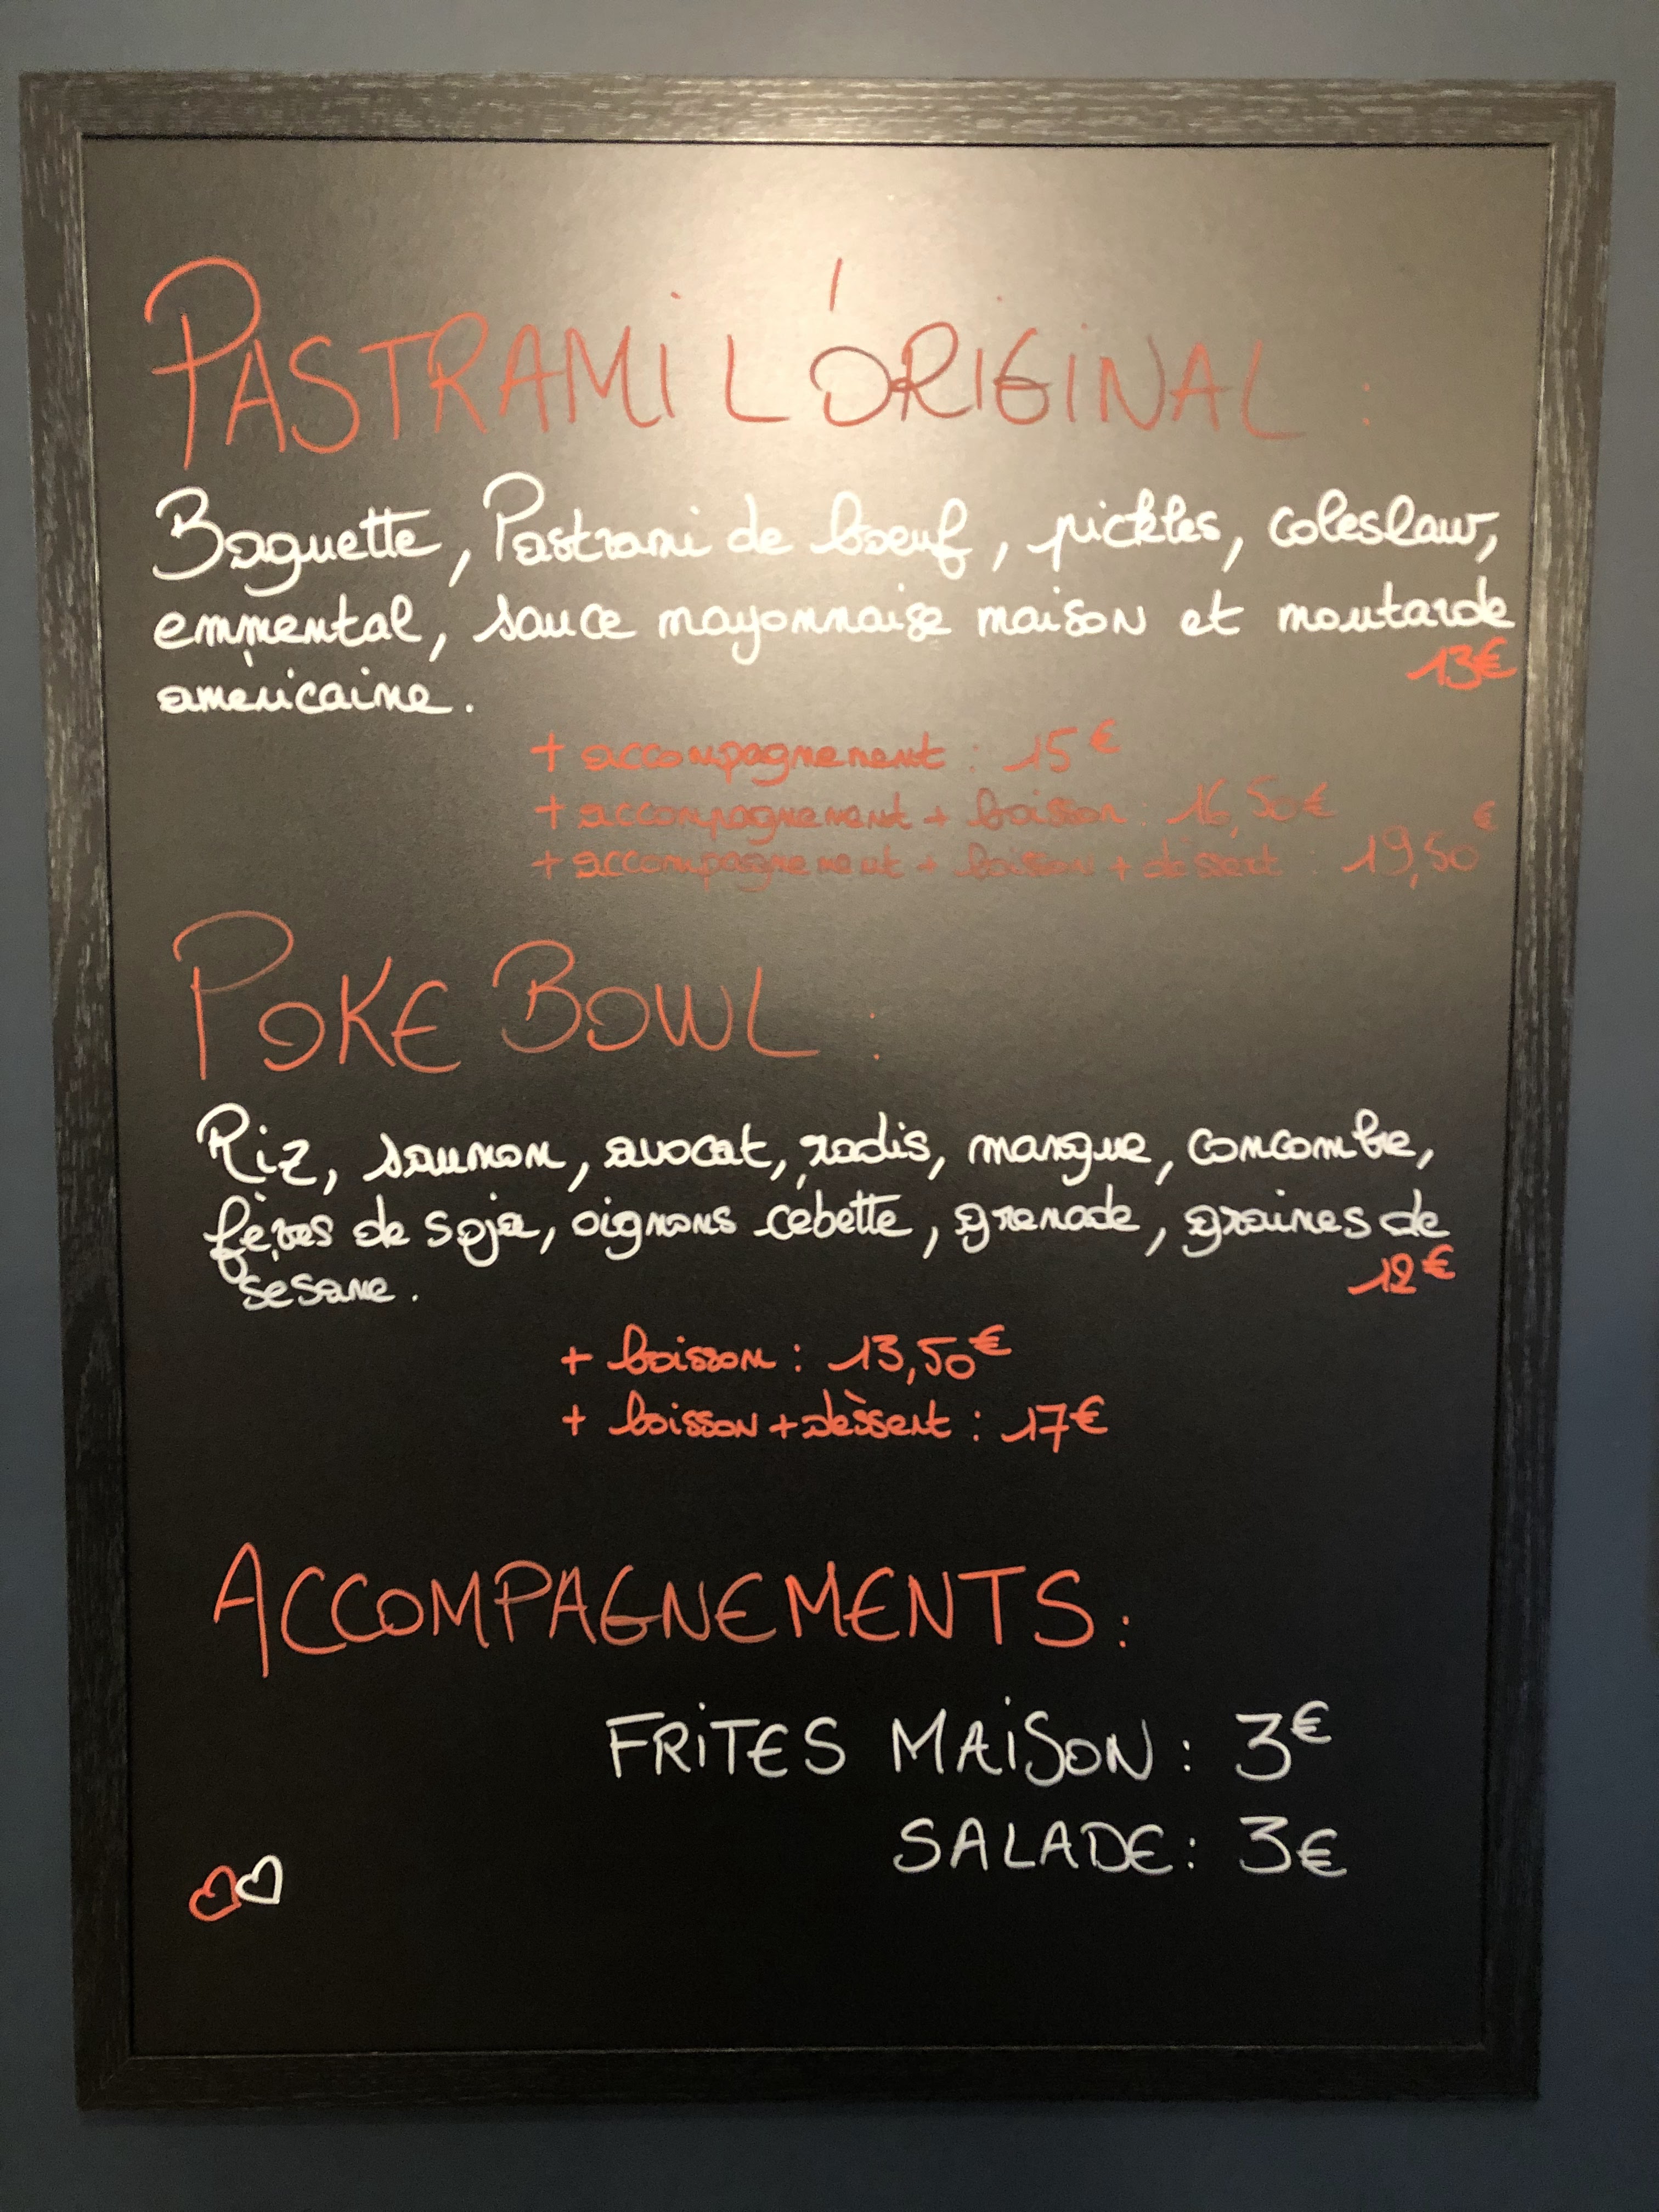 PASTRAMi L'ORIGINAL :
Baguette, Pastrami de boeuf, pickles, coleslaw,
emmental, sauce mayonnaise maison et moutarde
13€
américaine.
+ accompagnement : 15€
+ accompagnement + boisson : 16,50€
+ accompagnement + boisson + dèssert : 19,50€
POKE BOWL :
Riz, saumon, avocat, radis, mangue, concombre,
fèves de soja, oignons cébette, grenade, graines de
12€
sésame.
+ boisson : 13,50€
+ boisson + dèssert : 17€
ACCOMPAGNEMENTS :
FRiTES MAiSON : 3€
SALADE : 3€